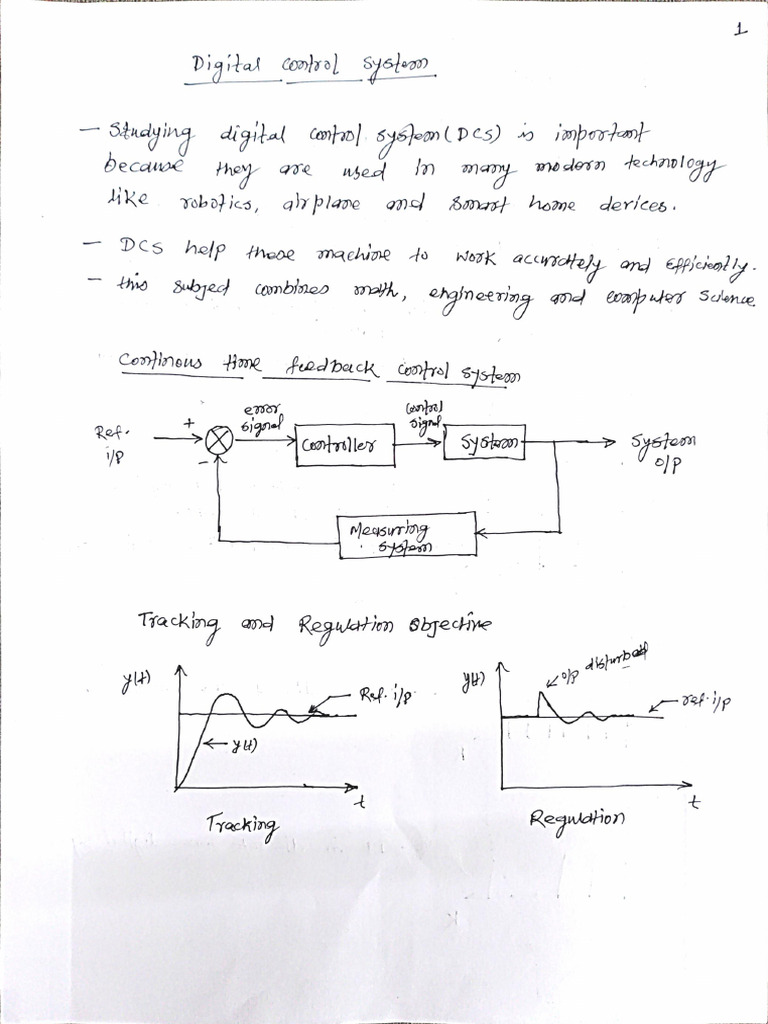 1
Digital control system
- Studying digital control system (DCS) is important
because they are used in many modern technology
like robotics, airplane and smart home devices.
- DCS help these machine to work accurately and efficiently.
- this subject combines math, engineering and computer science
Continous time feedback control system
Ref.
i/p
+
-
error
signal
Controller
control
signal
System
System
o/p
Measuring
system
Tracking and Regulation Objective
y(t)
Ref. i/p
y(t)
t
Tracking
y(t)
o/p disturbed
ref. i/p
t
Regulation